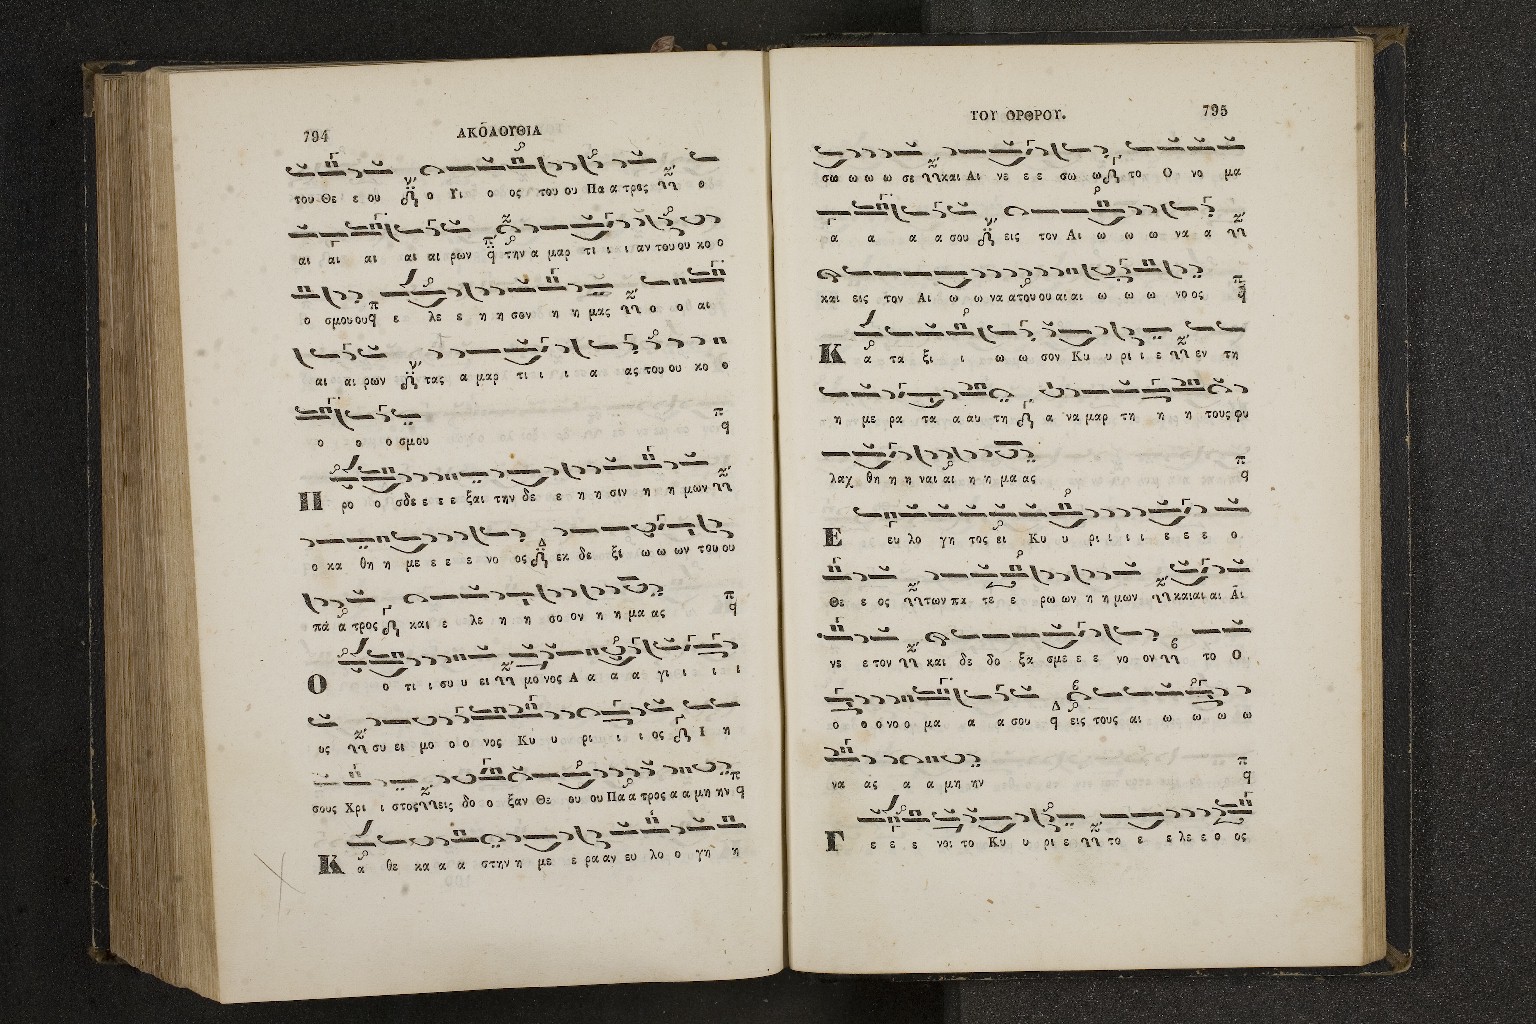 794
ΑΚΟΛΟΥΘΙΑ
του Θε ε ου ο Υι ο ος του ου Πα α τρος ο
αι αι αι αι αι ρων την α μαρ τι ι ι αν του ου κο ο
ο σμου ου ε λε ε η η σον η η μας ο ο αι
αι αι ρων τας α μαρ τι ι ι α ας του ου κο ο
ο ο ο σμου
Π ρο ο σδε ε ε ε ξαι την δε ε η η σιν η η μων
ο κα θη η με ε ε ε νο ος εκ δε ξι ω ω ων του ου
πα α τρος και ε λε η η σο ον η η μα ας
Ο ο τι ι συ υ ει μο νος Α α α α γι ι ι ι
ος συ ει μο ο ο νος Κυ υ ρι ι ι ος Ι η
σους Χρι ι στος εις δο ο ξαν Θε ου ου Πα α τρος α α μη ην
Κ α θε κα α α στην η με ε ρα αν ευ λο ο γη η
ΤΟΥ ΟΡΘΡΟΥ.
795
σω ω ω ω σε και Αι νε ε ε σω ω το Ο νο μα
α α α α σου εις τον Αι ω ω ω να α
και εις τον Αι ω ω να α του ου αι αι ω ω ω νο ος
Κ α τα ξι ι ω ω σον Κυ υ ρι ι ε εν τη
η με ρα τα α αυ τη α να μαρ τη η η τους φυ
λαχ θη η η ναι αι η η μα ας
Ε ευ λο γη τος ει Κυ υ ρι ι ι ι ε ε ε ο
Θε ε ος των πα τε ε ρω ων η η μων και αι αι Αι
νε ε τον και δε δο ξα σμε ε ε νο ον το Ο
ο ο ο νο ο μα α α σου εις τους αι ω ω ω ω
να ας α α μη ην
Γ ε ε ε νοι το Κυ υ ρι ε το ε ε λε ε ο ος